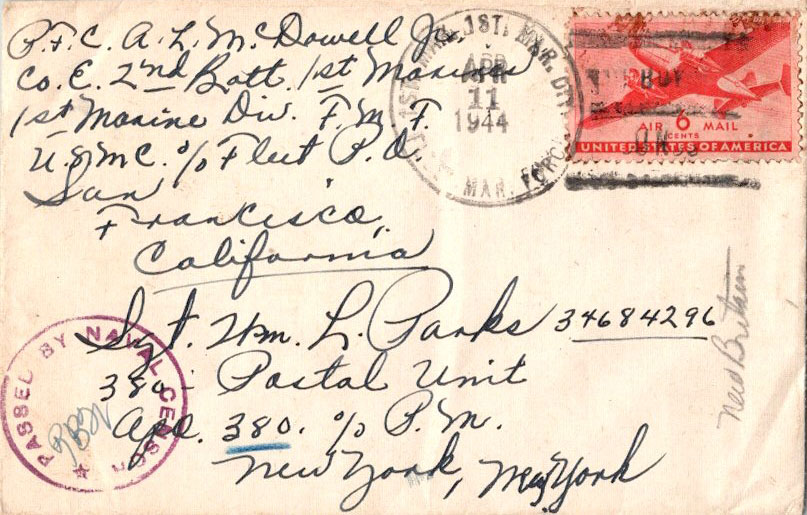 P.F.C. A. L. McDowell Jr.
Co. E. 2nd Batt. 1st Marines
1st Marine Div. F.M.F.
U.S.M.C. % Fleet P.O.
San
Francisco,
California
1ST. MAR. DIV.
MAR. FORCE
APR
11
1944
BUY
AIR 6 MAIL
CENTS
UNITED STATES OF AMERICA
Sgt. Wm. L. Parks 34684296
380 - Postal Unit
Apo. 380. % P.M.
New York, New York
PASSED BY NAVAL CENSOR
New Britain